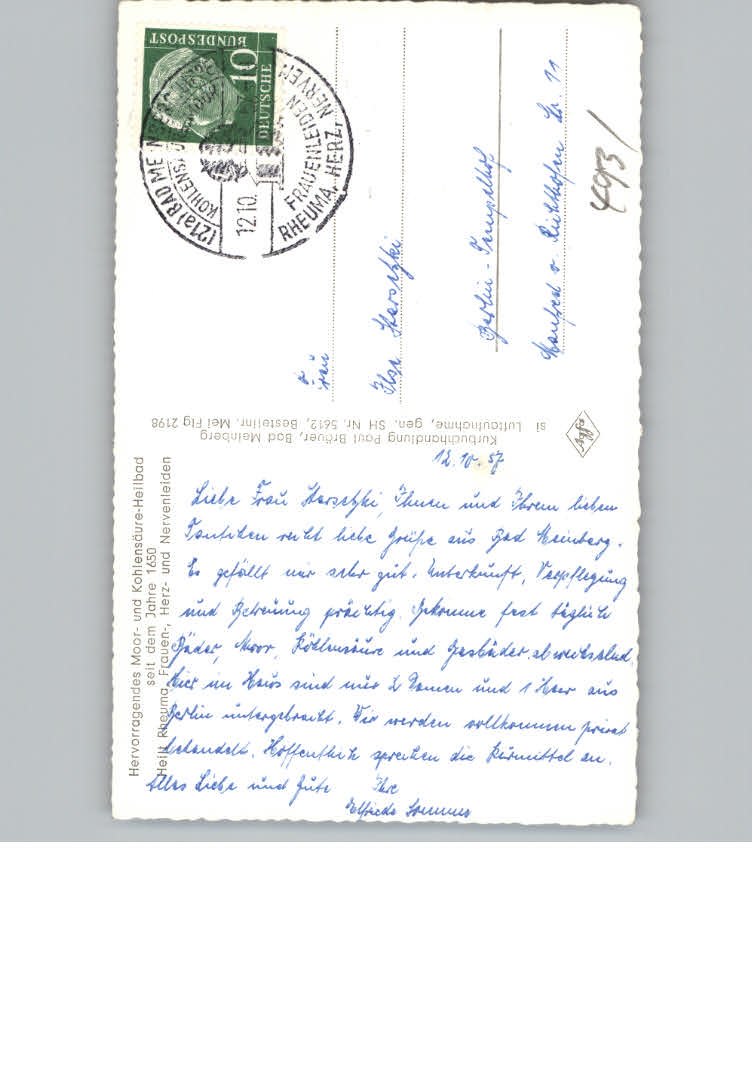 Hervorragendes Moor- und Kohlensäure-Heilbad
seit dem Jahre 1650
Heilt Rheuma, Frauen-, Herz- und Nervenleiden
12.10.57
Liebe Frau Starsetzki, Ihnen und Ihrem lieben
Tantchen recht liebe Grüße aus Bad Meinberg.
Es gefällt mir sehr gut. Unterkunft, Verpflegung
und Betreuung prächtig. Bekomme fast täglich
Bäder, Moor, Kohlensäure und Gasbäder abwechselnd.
Hier im Haus sind nur 2 Damen und 1 Herr aus
Berlin untergebracht. Wir werden vollkommen privat
behandelt. Hoffentlich sprechen die Kurmittel an.
Alles Liebe und Gute Ihre
Elfriede Sommer
Kurbuchhandlung Paul Bröver, Bad Meinberg
si Luftaufnahme, gen. SH Nr. 5612, Bestellnr. Mei Flg 2198
Agfa
DEUTSCHE
BUNDESPOST
10
(21a) BAD MEINBERG
12.10.
FRAUENLEIDEN
RHEUMA, HERZ, NERVEN
Frau
Ilse Starsetzki
Berlin - Tempelhof
Manfred v. Richthofen Str. 11
493